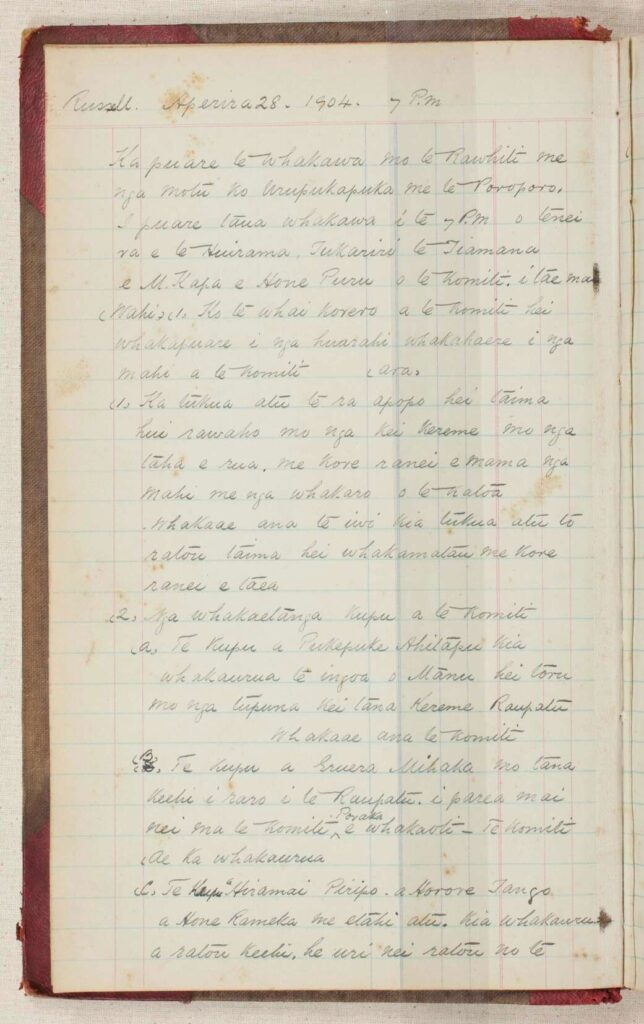 Russell. Aperira 28. 1904. 7 P.m
Ka puare te whakawa mo te Rawhiti me
nga motu ko Urupukapuka me te Poroporo.
I puare tana whakawa i te 7 P.M o tenei
ra e te Huirama. Tukariri te Tiamana
e M. Kapa e Hone Puru o te Komiti. i tae mai
(Wahi) (1. Ko te whai korero a te Komiti hei
whakapuare i nga huarahi whakahaere i nga
mahi a te Komiti (ara)
(1. Ka tukua atu te ra apopo hei taima
hui rawaho mo nga kei kereme mo nga
taha e rua, me kore ranei e mama nga
mahi me nga whakaro o te katoa
Whakaae ana te iwi kia tukua atu to
ratou taima hei whakamatau me kore
ranei e taea
(2. Nga whakaetanga kupu a te Komiti
(a. Te Kupu a Pukepuke Ahitapu kia
whakaurua te ingoa o Manu hei toru
mo nga tupuna kei tana Kereme Raupatu
Whakaae ana te Komiti
(B. Te Kupu a Eruera Mihaka mo tana
keehi i raro i te Raupatu. i parea mai
nei ma te Komiti Poraka e whakaoti – Te Komiti
(Ae Ka whakaurua
(C. Te Kupu a Hiramai Piripo. a Horove Tango
a Hone Kameka me etahi atu. Kia whakaurua
a ratou keehi, he uri nei ratou no te